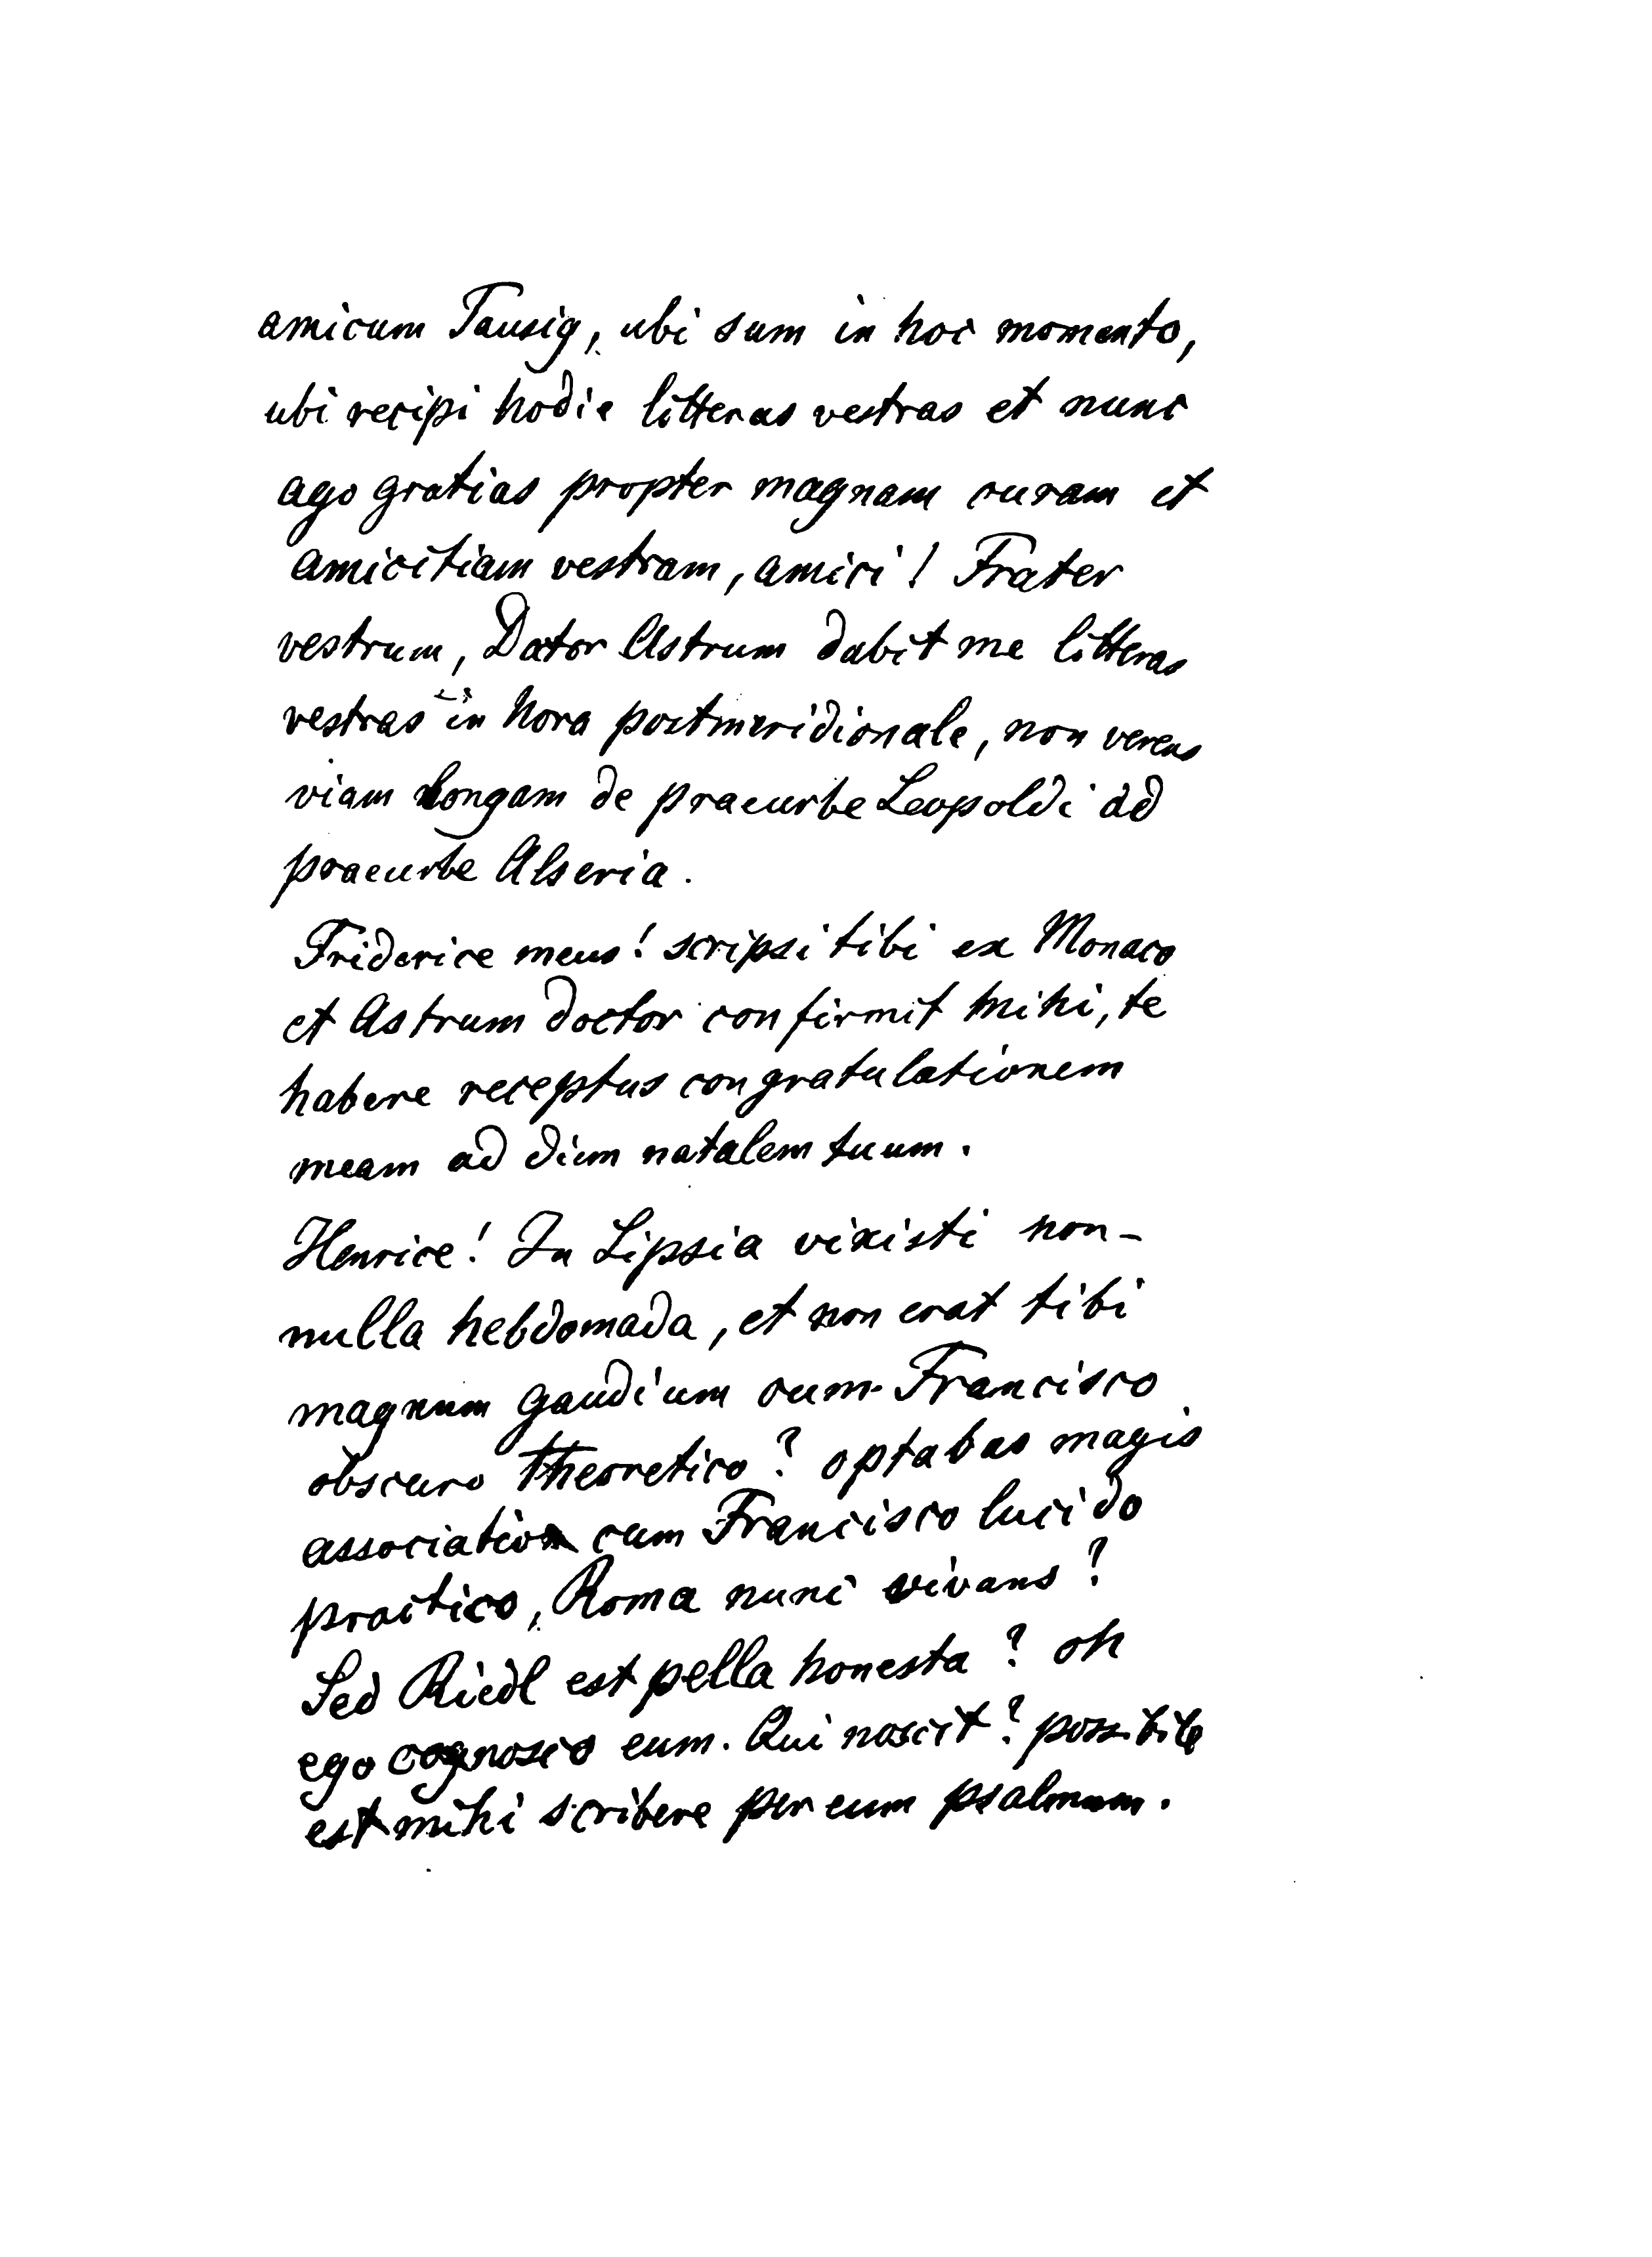 amicum Tausig, ubi sum in hoc momento,
ubi recipi hodie litteras vestras et nunc
ago gratias propter magnam curam et
amicitiam vestram, amici! Frater
vestrum, Dator Astrum dabit me litteras
vestras in hora postmeridionale, non verens
viam longam de praeurbe Leopoldi ad
praeurbe Alseria.
Friderice meus! scripsi tibi ex Monaco
et Astrum doctor confirmit mihi, te
habere receptus congratulationem
meam ad diem natalem tuum.
Henrice! In Lipsia vixisti non-
nulla hebdomada, et non erat tibi
magnum gaudium cum Francisco
obscuro theoretico? optabas magis
association cum Francisco lucido
practico, Roma nunc vivans?
Sed Riedl est pella honesta? oh
ego cognosco eum. Qui noscit? possibile
est mihi scribere per eum psalmum.